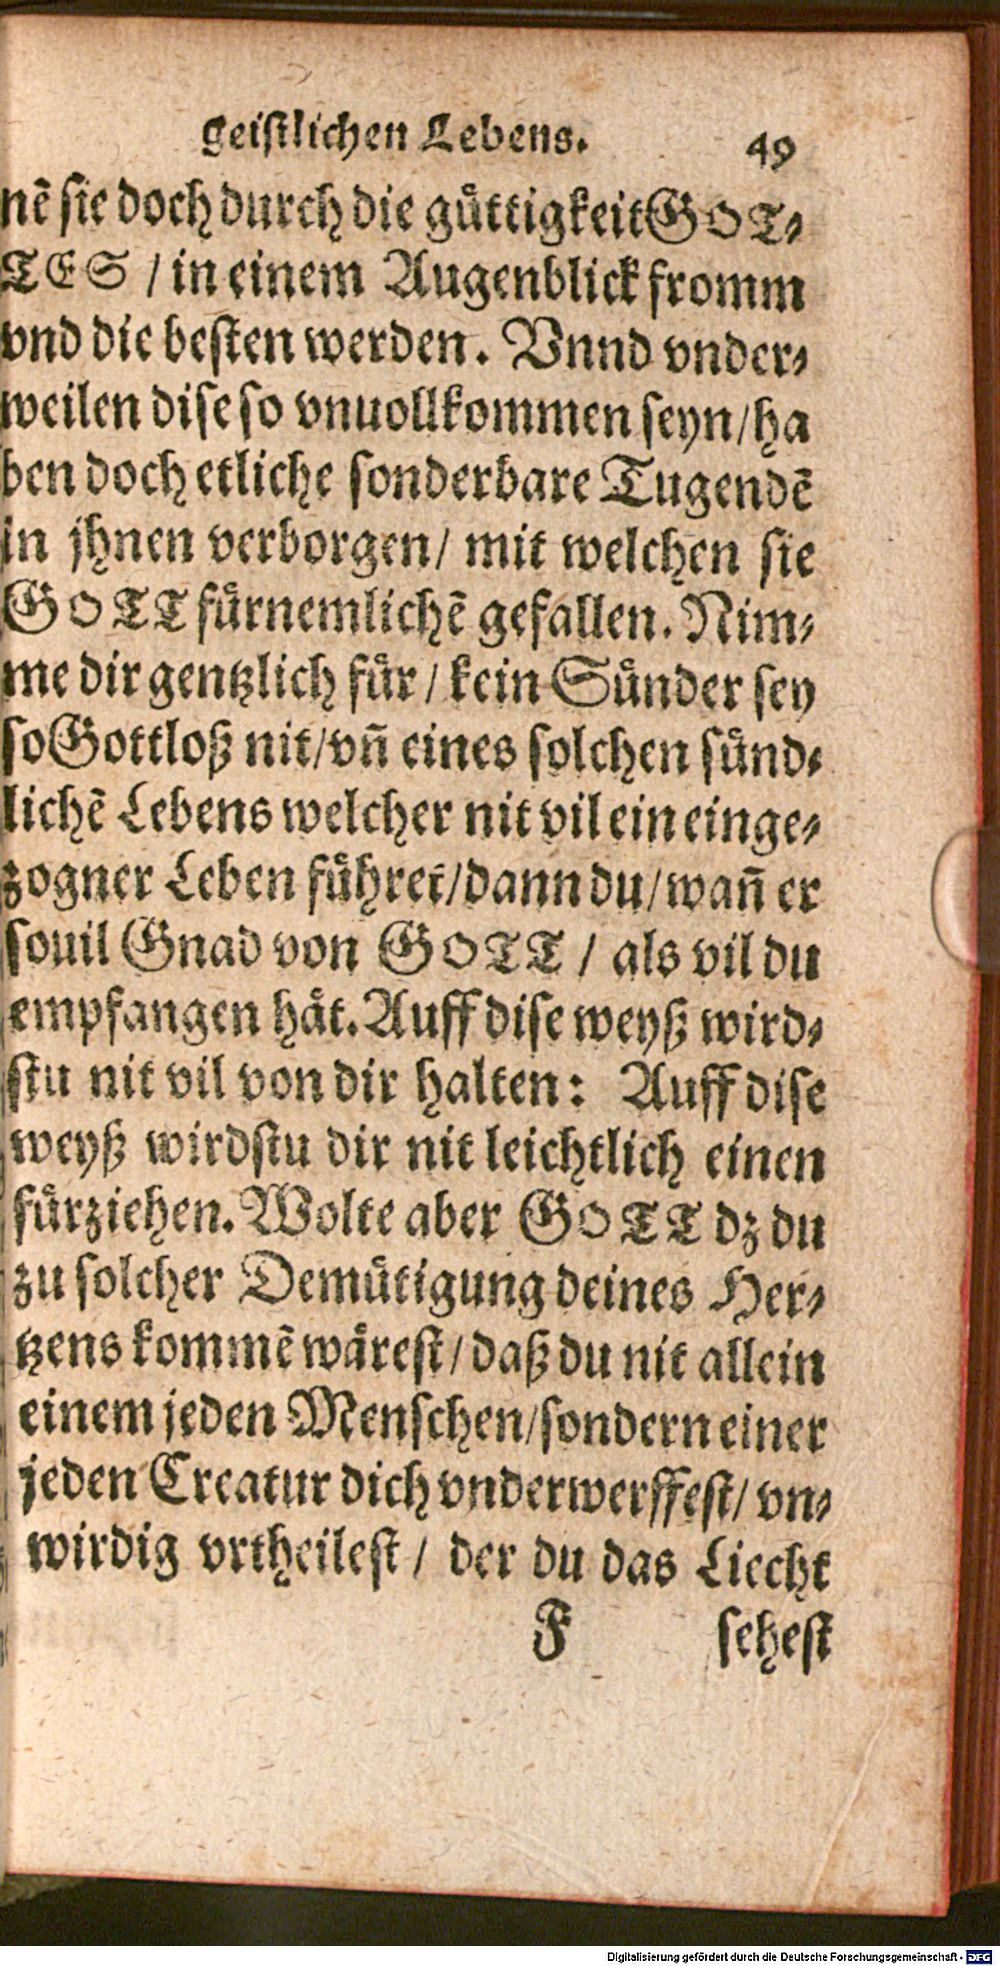 geistlichen Lebens. 49
nẽ sie doch durch die gůttigkeit GOT-
TES / in einem Augenblick fromm
vnd die besten werden. Vnnd vnder-
weilen dise so vnuollkommen seyn / ha
ben doch etliche sonderbare Tugendẽ
in jhnen verborgen / mit welchen sie
GOTT fůrnemlichẽ gefallen. Nim-
me dir gentzlich fůr / kein Sůnder sey
so Gottloß nit / vñ eines solchen sůnd-
lichẽ Lebens welcher nit vil ein einge-
zogner Leben fůhret / dann du / wañ er
souil Gnad von GOTT / als vil du
empfangen håt. Auff dise weyß wird-
stu nit vil von dir halten: Auff dise
weyß wirdstu dir nit leichtlich einen
fůrziehen. Wolte aber GOTT dz du
zu solcher Demůtigung deines Her-
tzens kommẽ wårest / daß du nit allein
einem jeden Menschen / sondern einer
jeden Creatur dich vnderwerffest / vn-
wirdig vrtheilest / der du das Liecht
F sehest
Digitalisierung gefördert durch die Deutsche Forschungsgemeinschaft - DFG